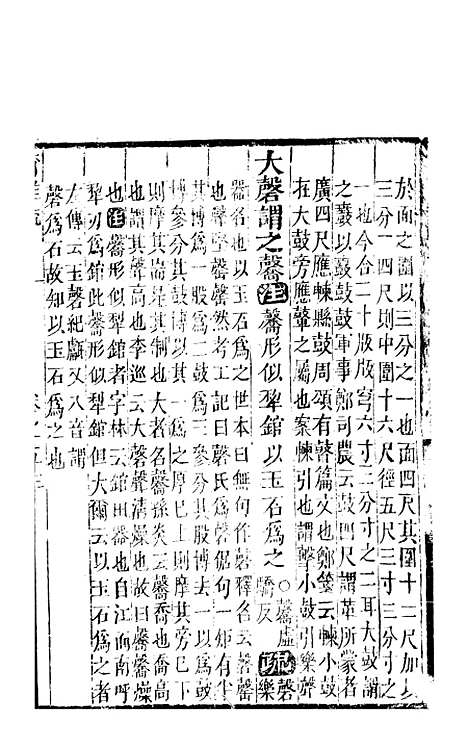 於面之圍以三分之一也面四尺其圍十二尺加以
三分一四尺則中圍十六尺徑五尺三寸三分寸之
一也今合二十版版穹六寸三分寸之二耳大鼓謂
之鼖以鼖鼓鼓軍事鄭司農云鼓四尺謂革所蒙者
廣四尺應朄縣鼓周頌有瞽篇文也鄭箋云朄小鼓
在大鼓旁應鼙之屬也案朄引也謂擊小鼓引樂聲
大磬謂之毊注毊形似犁錧以玉石爲之○毊虛驕反疏樂磬
器名也以玉石爲之世本曰無句作磬釋名云磬罄
也聲堅罄罄然考工記曰磬氏爲磬倨句一矩有半
其博爲一股爲二鼓爲三參分其股博去一以爲鼓
博參分其鼓博以其一爲之厚已上則摩其旁已下
則摩其耑是其制也大者名毊孫炎云毊喬也喬高
也謂其聲高也李巡云大磬聲清燥也故曰毊毊燥
也注毊形似犁錧者字林云錧田器也自江而南呼
犁刃爲錧此毊形似犁錧但大爾云以玉石爲之者
左傳云玉磬紀甗又八音謂
磬爲石故知以玉石爲之也